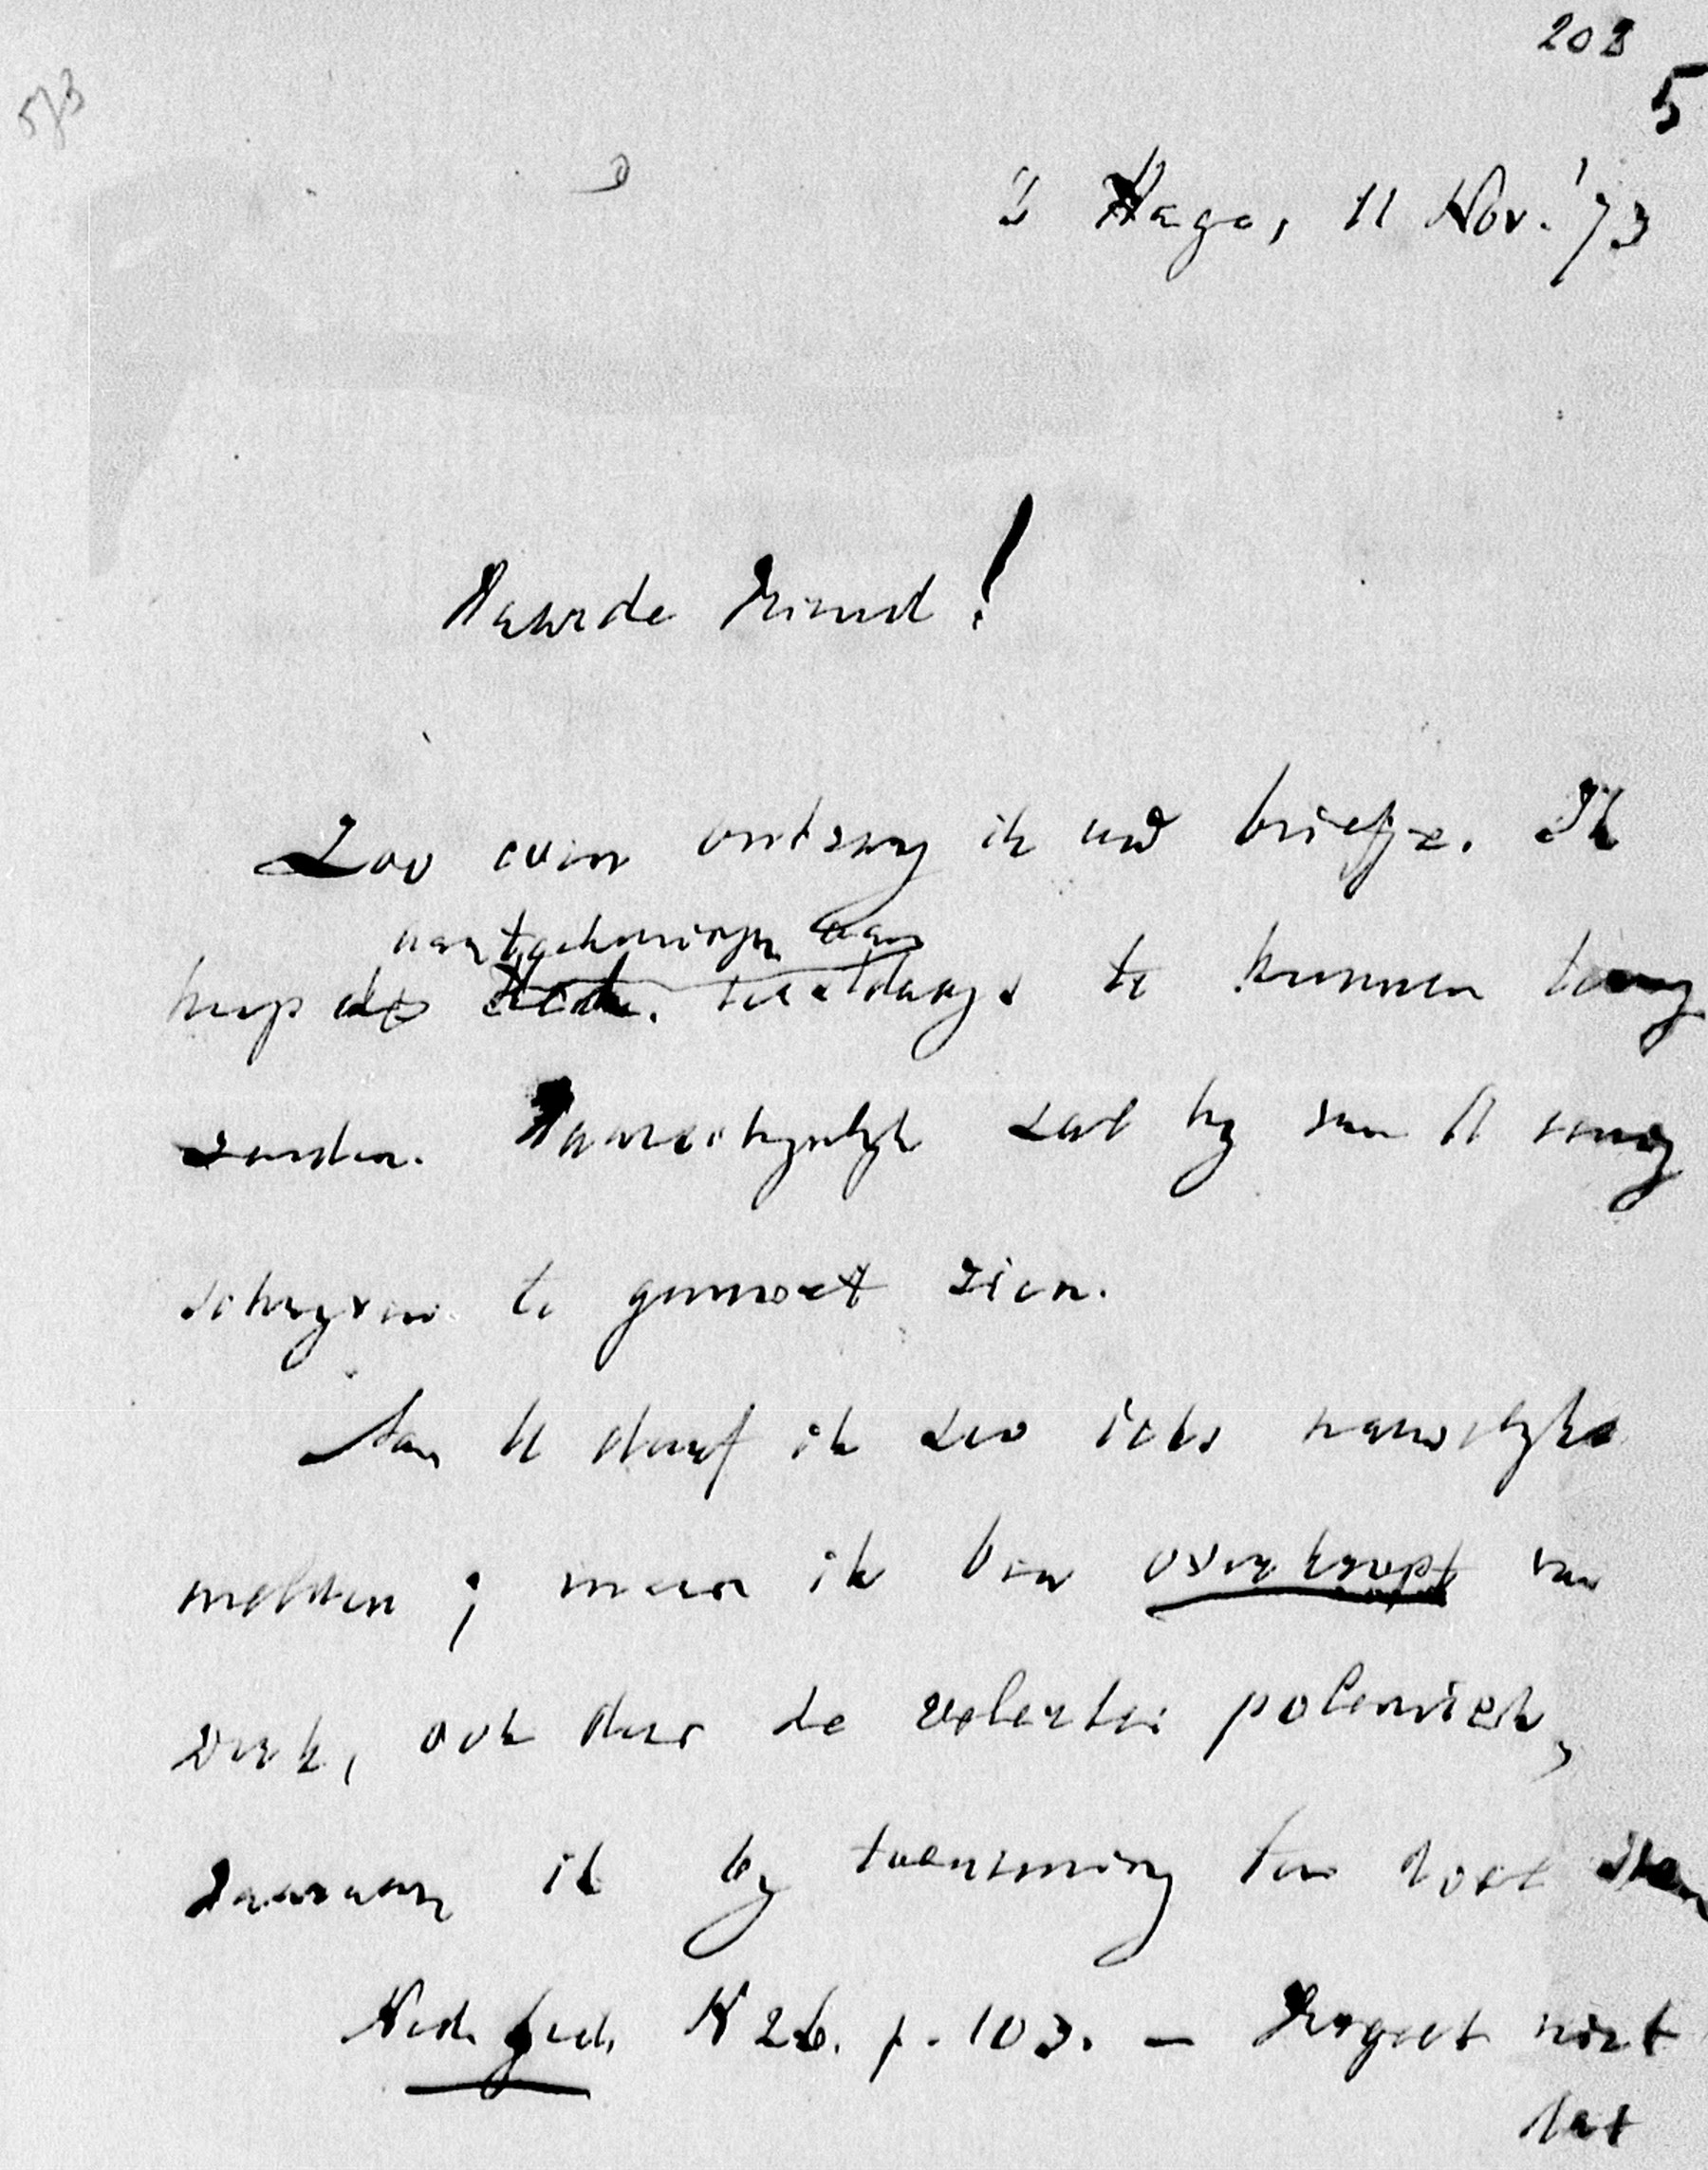 208
5
573
's Hage, 11 Nov. '73
Waarde Vriend!
Zoo even ontvang ik uw briefje. Ik
aanteekeningen
hoop de te kunnen terug
zenden. Waarschijnlijk zal hij van U eenig
schrijven te gemoet zien.
Aan U durf ik zoo iets nauwelijks
melden; maar ik ben overkropt van
werk, ook door de velerlei polemiek,
waaraan ik bij toeneming ten doel sta.
Ned. Ged. N 26. p. 103. — Vergeet niet
dat